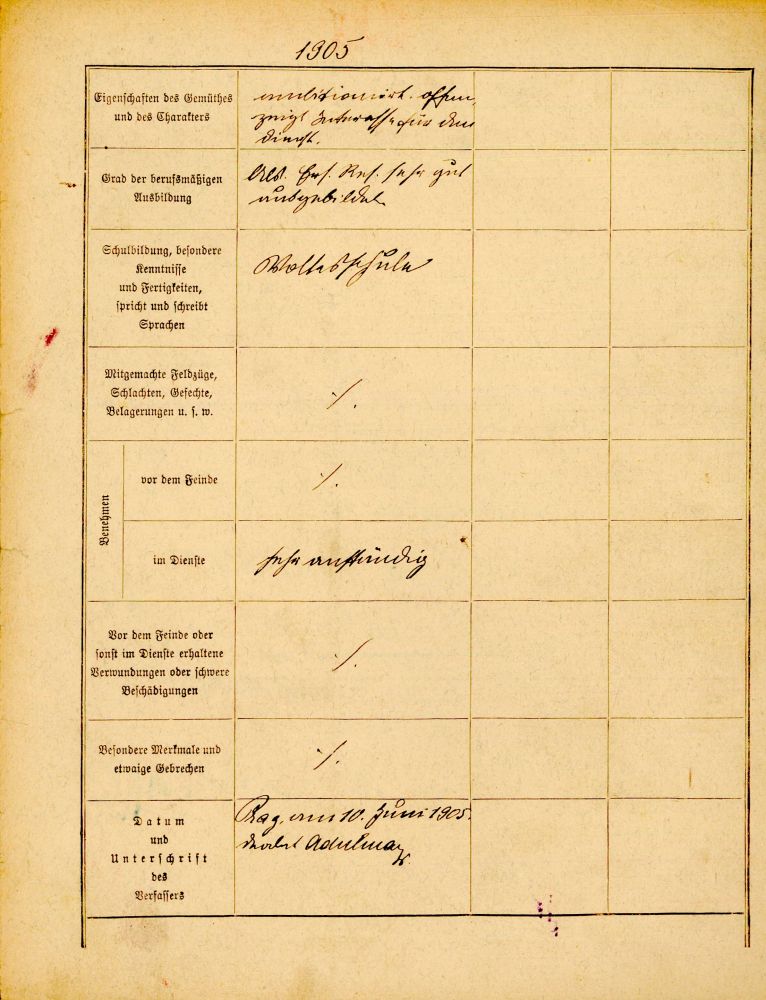 1905
Eigenschaften des Gemüthes
und des Charakters
ambitionirt. offen,
zeigt Interesse für den
Dienst.
Grad der berufsmäßigen
Ausbildung
Als Ers. Res. sehr gut
ausgebildet
Schulbildung, besondere
Kenntnisse
und Fertigkeiten,
spricht und schreibt
Sprachen
Volksschule
Mitgemachte Feldzüge,
Schlachten, Gefechte,
Belagerungen u. s. w.
⁒.
Benehmen
vor dem Feinde
⁒.
im Dienste
sehr anständig
Vor dem Feinde oder
sonst im Dienste erhaltene
Verwundungen oder schwere
Beschädigungen
⁒.
Besondere Merkmale und
etwaige Gebrechen
⁒.
Datum
und
Unterschrift
des
Verfassers
Prag, am 10. Juni 1905.